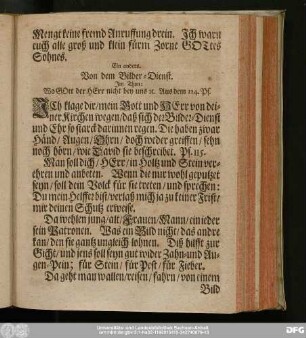 Menge keine fremd Anruffung drein. Ich warn
euch alle groß und klein fürm Zorne GOttes
Sohnes.
Ein anders.
Von dem Bilder-Dienst.
Im Thon:
Wo GOtt der HErr nicht bey uns ꝛc. Aus dem 114. Ps.
ICh klage dir/ mein Gott und HErr von dei-
ner Kirchen wegen/ daß sich der Bilder-Dienst
und Ehr so starck darinnen regen. Die haben zwar
Händ/ Augen/ Ohrn/ doch weder greiffen/ sehn
noch hörn/ wie David sie beschreibet. Ps. 115.
Man soll dich/ HErr/ in Holtz und Stein ver-
ehren und anbeten. Wenn die nur wohl geputzet
seyn/ soll dein Volck für sie treten/ und sprechen:
Du mein Helffer bist/ versäh mich ja zu keiner Frist/
mir deinen Schutz erweise.
Da wehlen jung/ alt/ Frauen/ Mann/ ein ieder
sein Patronen. Was ein Bild nicht/ das andre
kan/ den sie gantz ungleich lohnen. Diß hilfft zur
Gicht/ und jens soll seyn gut wider Zahn- und Au-
gen-Pein; für Stein/ für Pest/ für Fieber.
Da geht man wallen/ reisen/ fahrn/ von einem
Bild